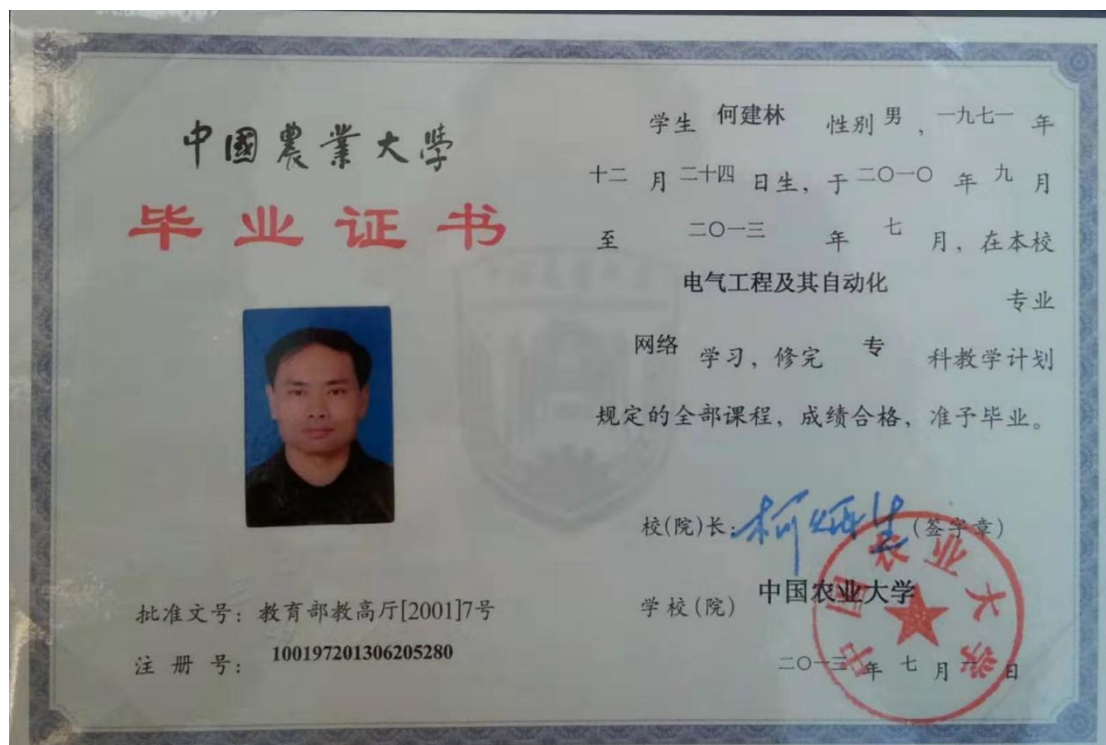 中國農業大學
毕业证书
批准文号：教育部教高厅[2001]7号
注册号：100197201306205280
学生 何建林 性别 男，一九七一 年
十二 月 二十四 日生，于 二〇一〇 年 九 月
至 二〇一三 年 七 月，在本校
电气工程及其自动化 专业
网络 学习，修完 专 科教学计划
规定的全部课程，成绩合格，准予毕业。
校(院)长：柯炳生(签字章)
学校(院) 中国农业大学
二〇一三 年 七 月 一 日
中国农业大学